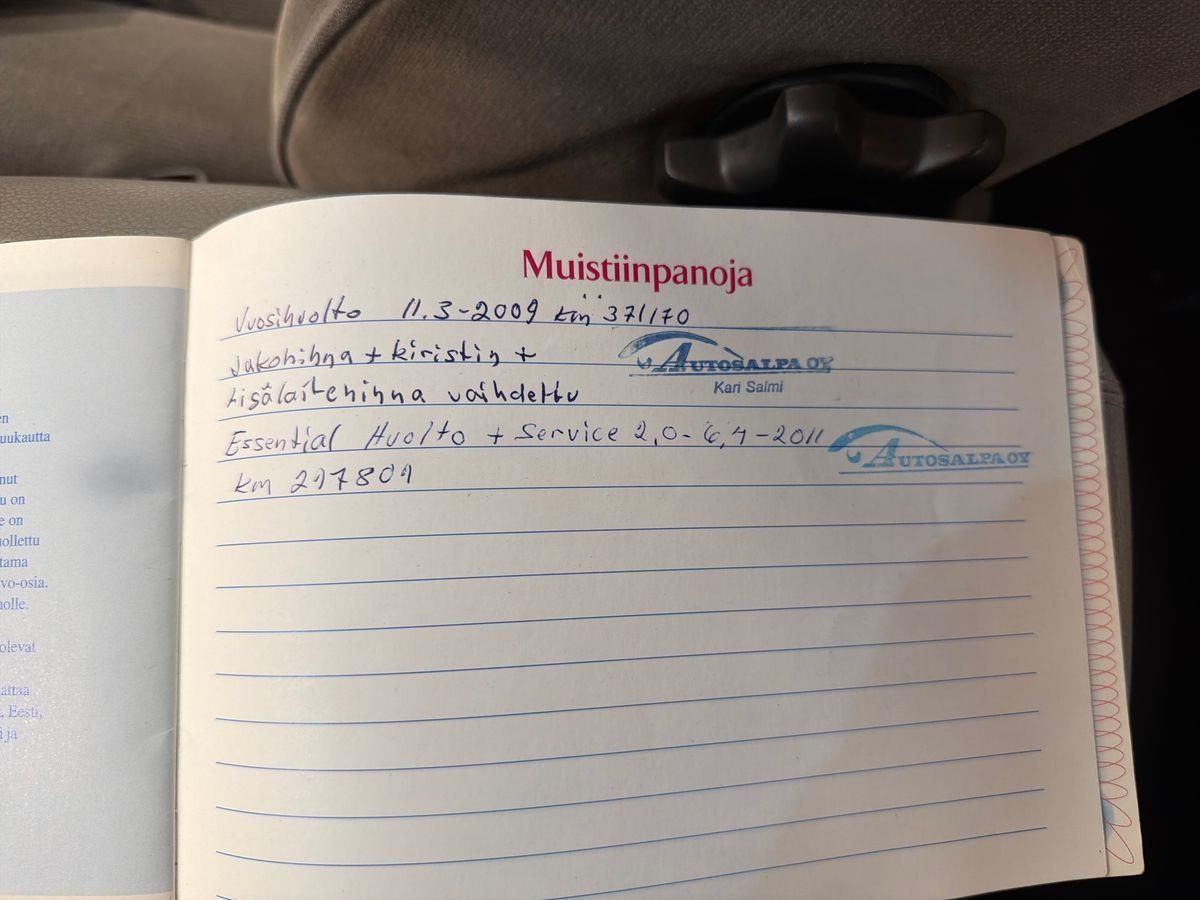 en
uukautta
nut
u on
e on
ollettu
tama
vo-osia.
nolle.
olevat
attaa
Eesti,
i ja
Muistiinpanoja
Vuosihuolto 11.3-2009 km 371170
Jakohihna + kiristin +
AUTOSALPA OY
Kari Salmi
Lisälaitehihna vaihdettu
Essential Huolto + Service 2,0-6,4-2011
AUTOSALPA OY
km 217801